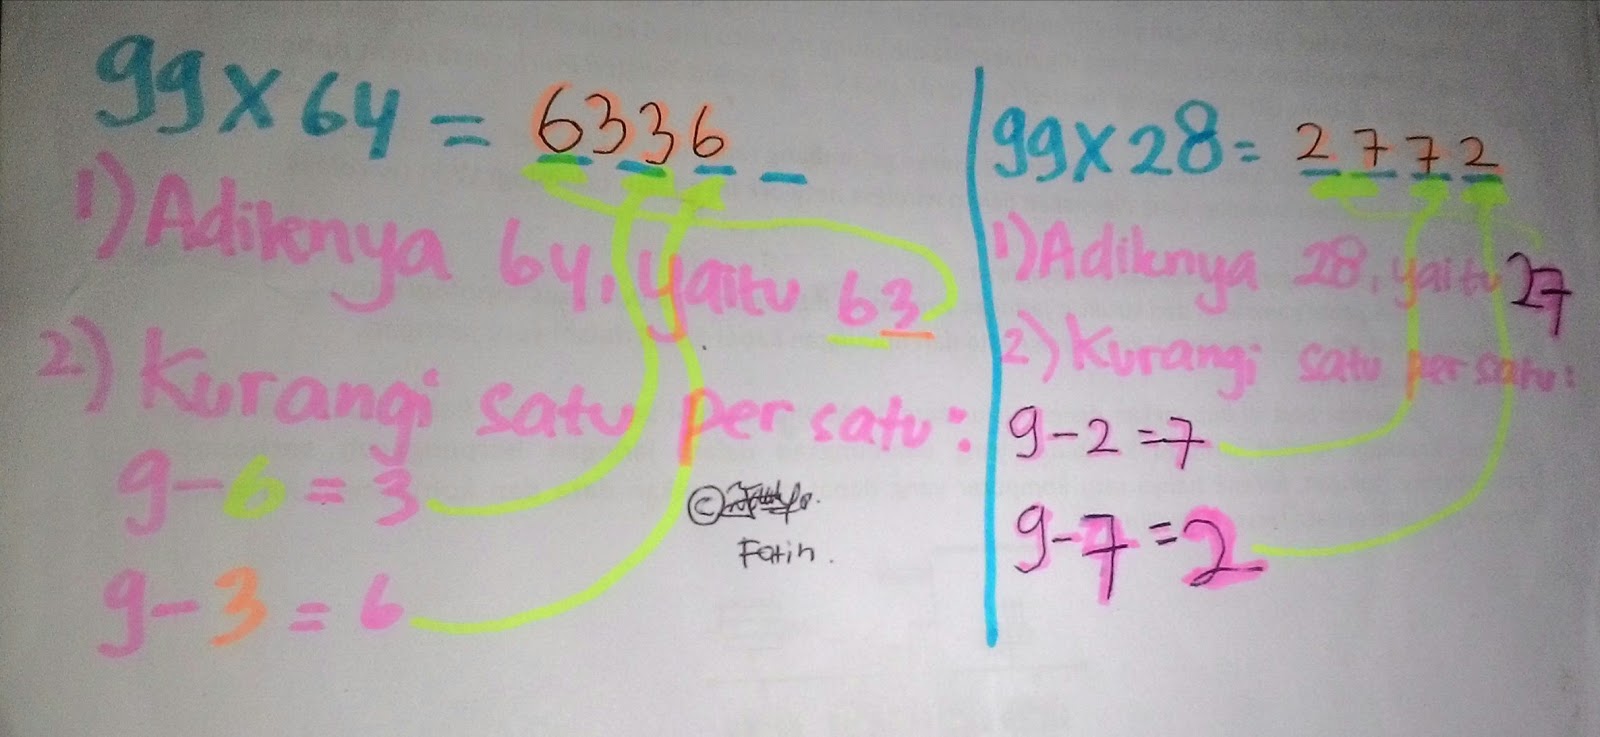 99 x 64 = 6336
1) Adiknya 64, yaitu 63
2) Kurangi satu per satu:
9 - 6 = 3
9 - 3 = 6
©
Fatih.
99 x 28 = 2772
1) Adiknya 28, yaitu 27
2) Kurangi satu per satu:
9 - 2 = 7
9 - 7 = 2